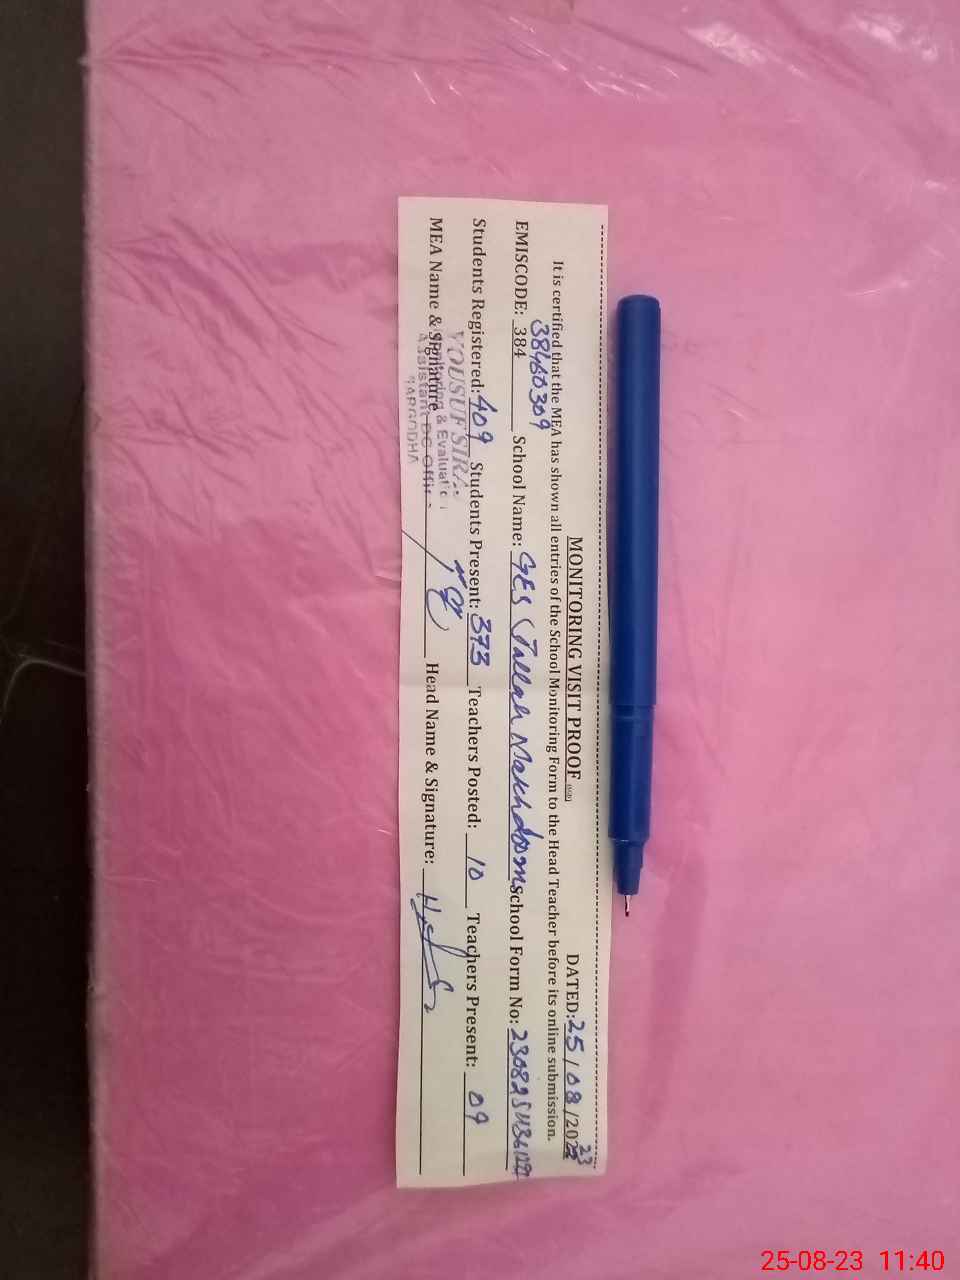 MONITORING VISIT PROOF
DATED: 25/08/2023
It is certified that the MEA has shown all entries of the School Monitoring Form to the Head Teacher before its online submission.
38460309
EMISCODE: 384 School Name: GES Jallah Makhdoom School Form No:
Students Registered: 409 Students Present: 373 Teachers Posted: 10 Teachers Present: 09
YOUSUF SIRA
MEA Name & Signature Head Name & Signature:
Monitoring & Evaluati
Assistant DC Offi
SARGODHA
25-08-23 11:40